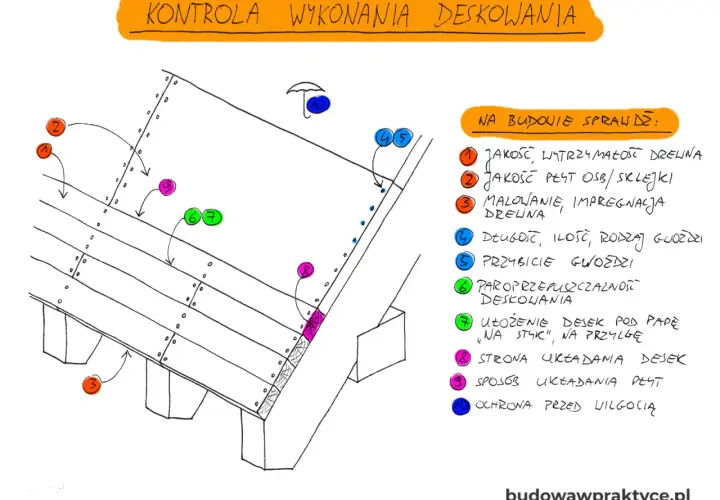 KONTROLA WYKONANIA DESKOWANIA
NA BUDOWIE SPRAWDŹ:
1 JAKOŚĆ, WYTRZYMAŁOŚĆ DREWNA
2 JAKOŚĆ PŁYT OSB/SKLEJKI
3 MALOWANIE, IMPREGNACJA
DREWNA
4 DŁUGOŚĆ, ILOŚĆ, RODZAJ GWOŹDZI
5 PRZYBICIE GWOŹDZI
6 PAROPRZEPUSZCZALNOŚĆ
DESKOWANIA
7 UŁOŻENIE DESEK POD PAPĘ
„NA STYK", NA PRZYLGĘ
8 STRONA UKŁADANIA DESEK
9 SPOSÓB UKŁADANIA PŁYT
10 OCHRONA PRZED WILGOCIĄ
10
2
1
4 5
9
6 7
8
3
budowawpraktyce.pl